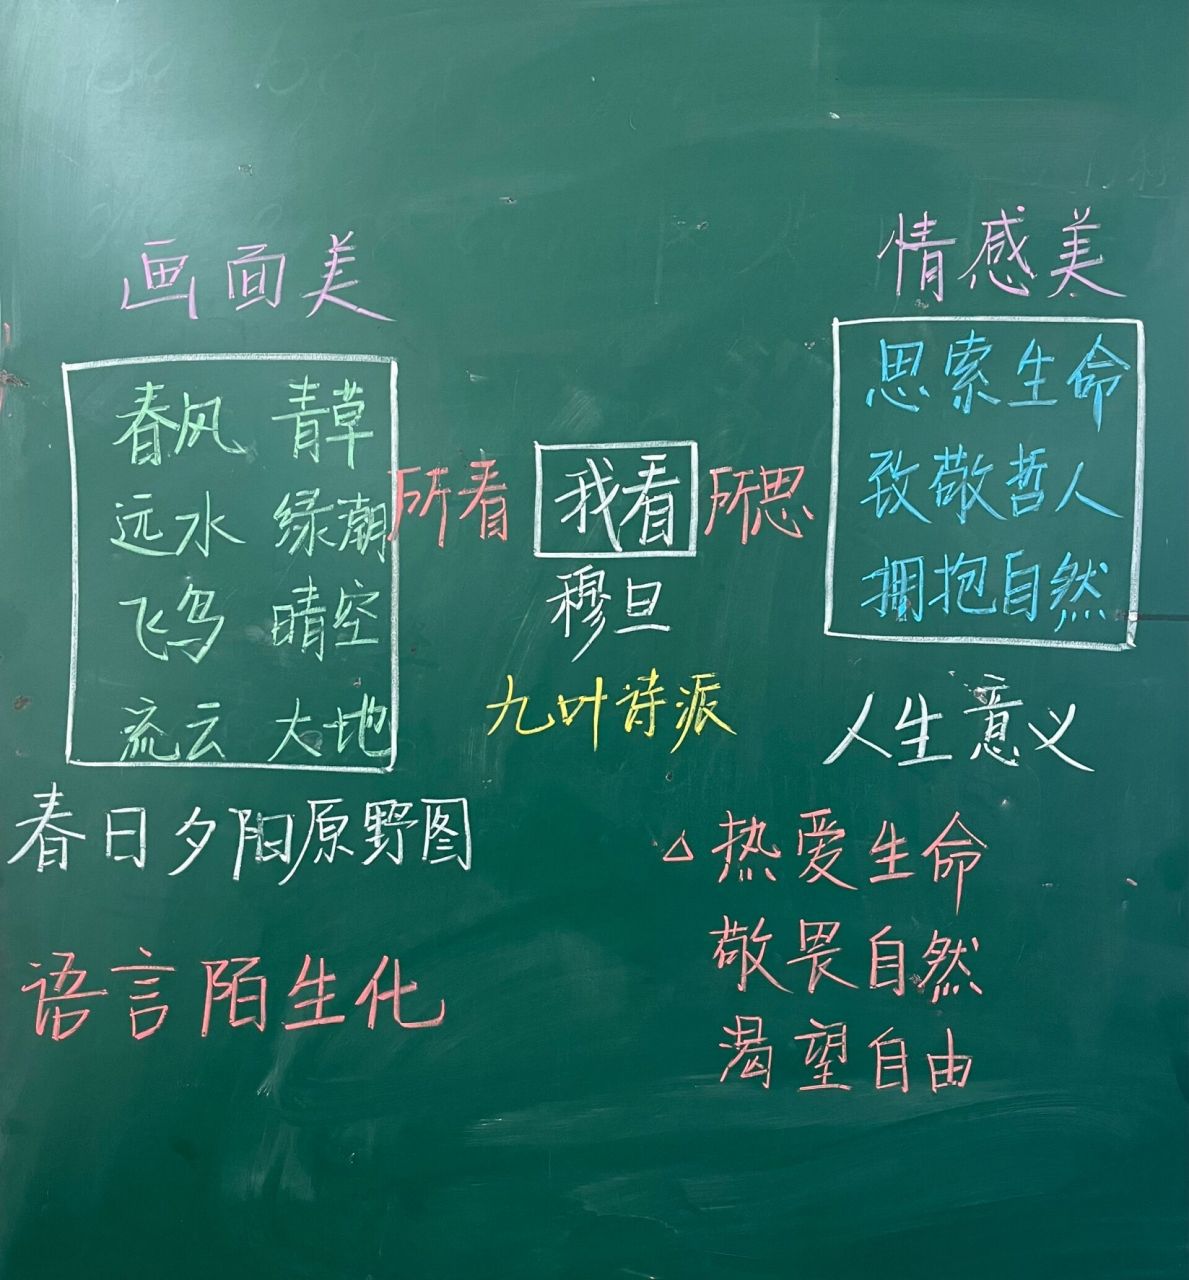 画面美
春风 青草
远水 绿潮
飞鸟 晴空
流云 大地
春日夕阳原野图
语言陌生化
所看
我看
所思
穆旦
九叶诗派
情感美
思索生命
致敬哲人
拥抱自然
人生意义
△热爱生命
敬畏自然
渴望自由